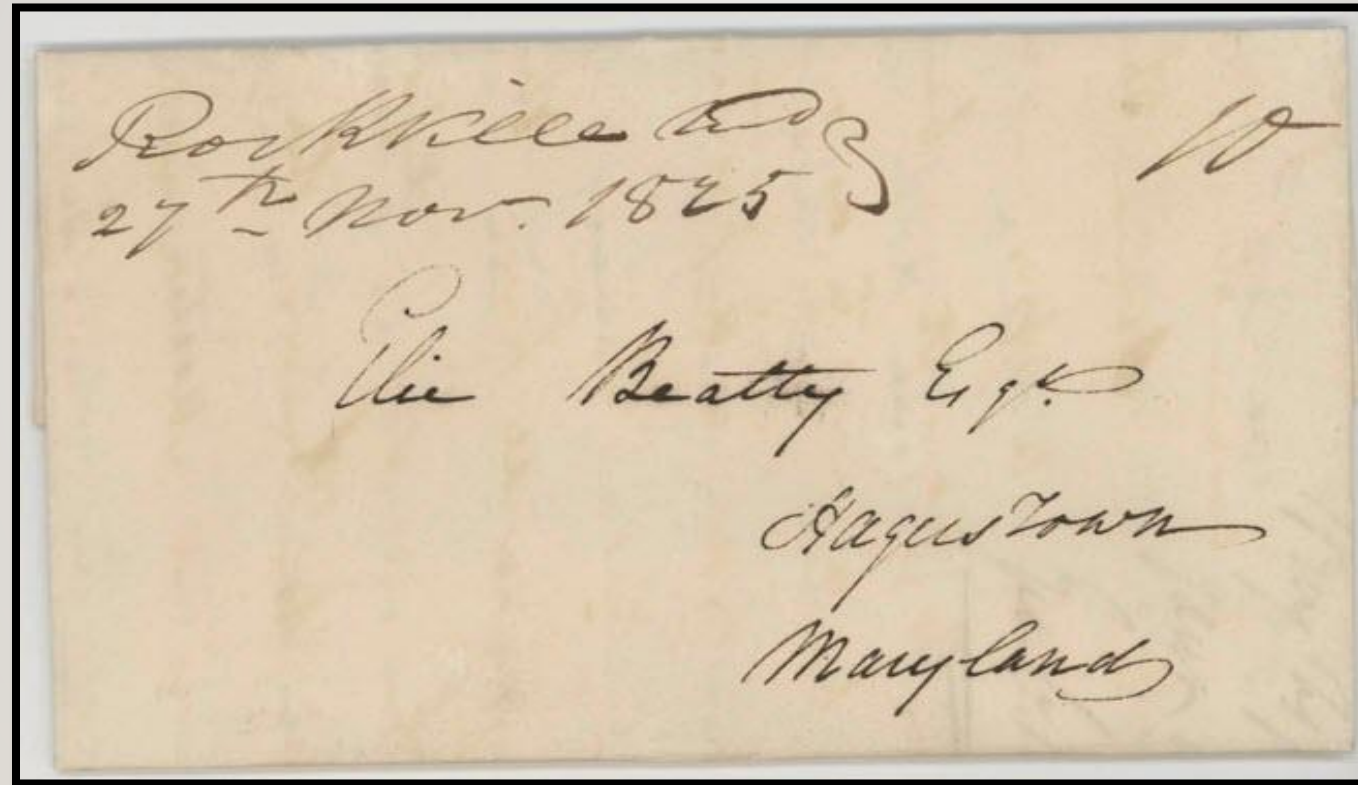 Rockville Md
27th Nov. 1825
10
Elie Beatty Esqr.
Hagerstown
Maryland